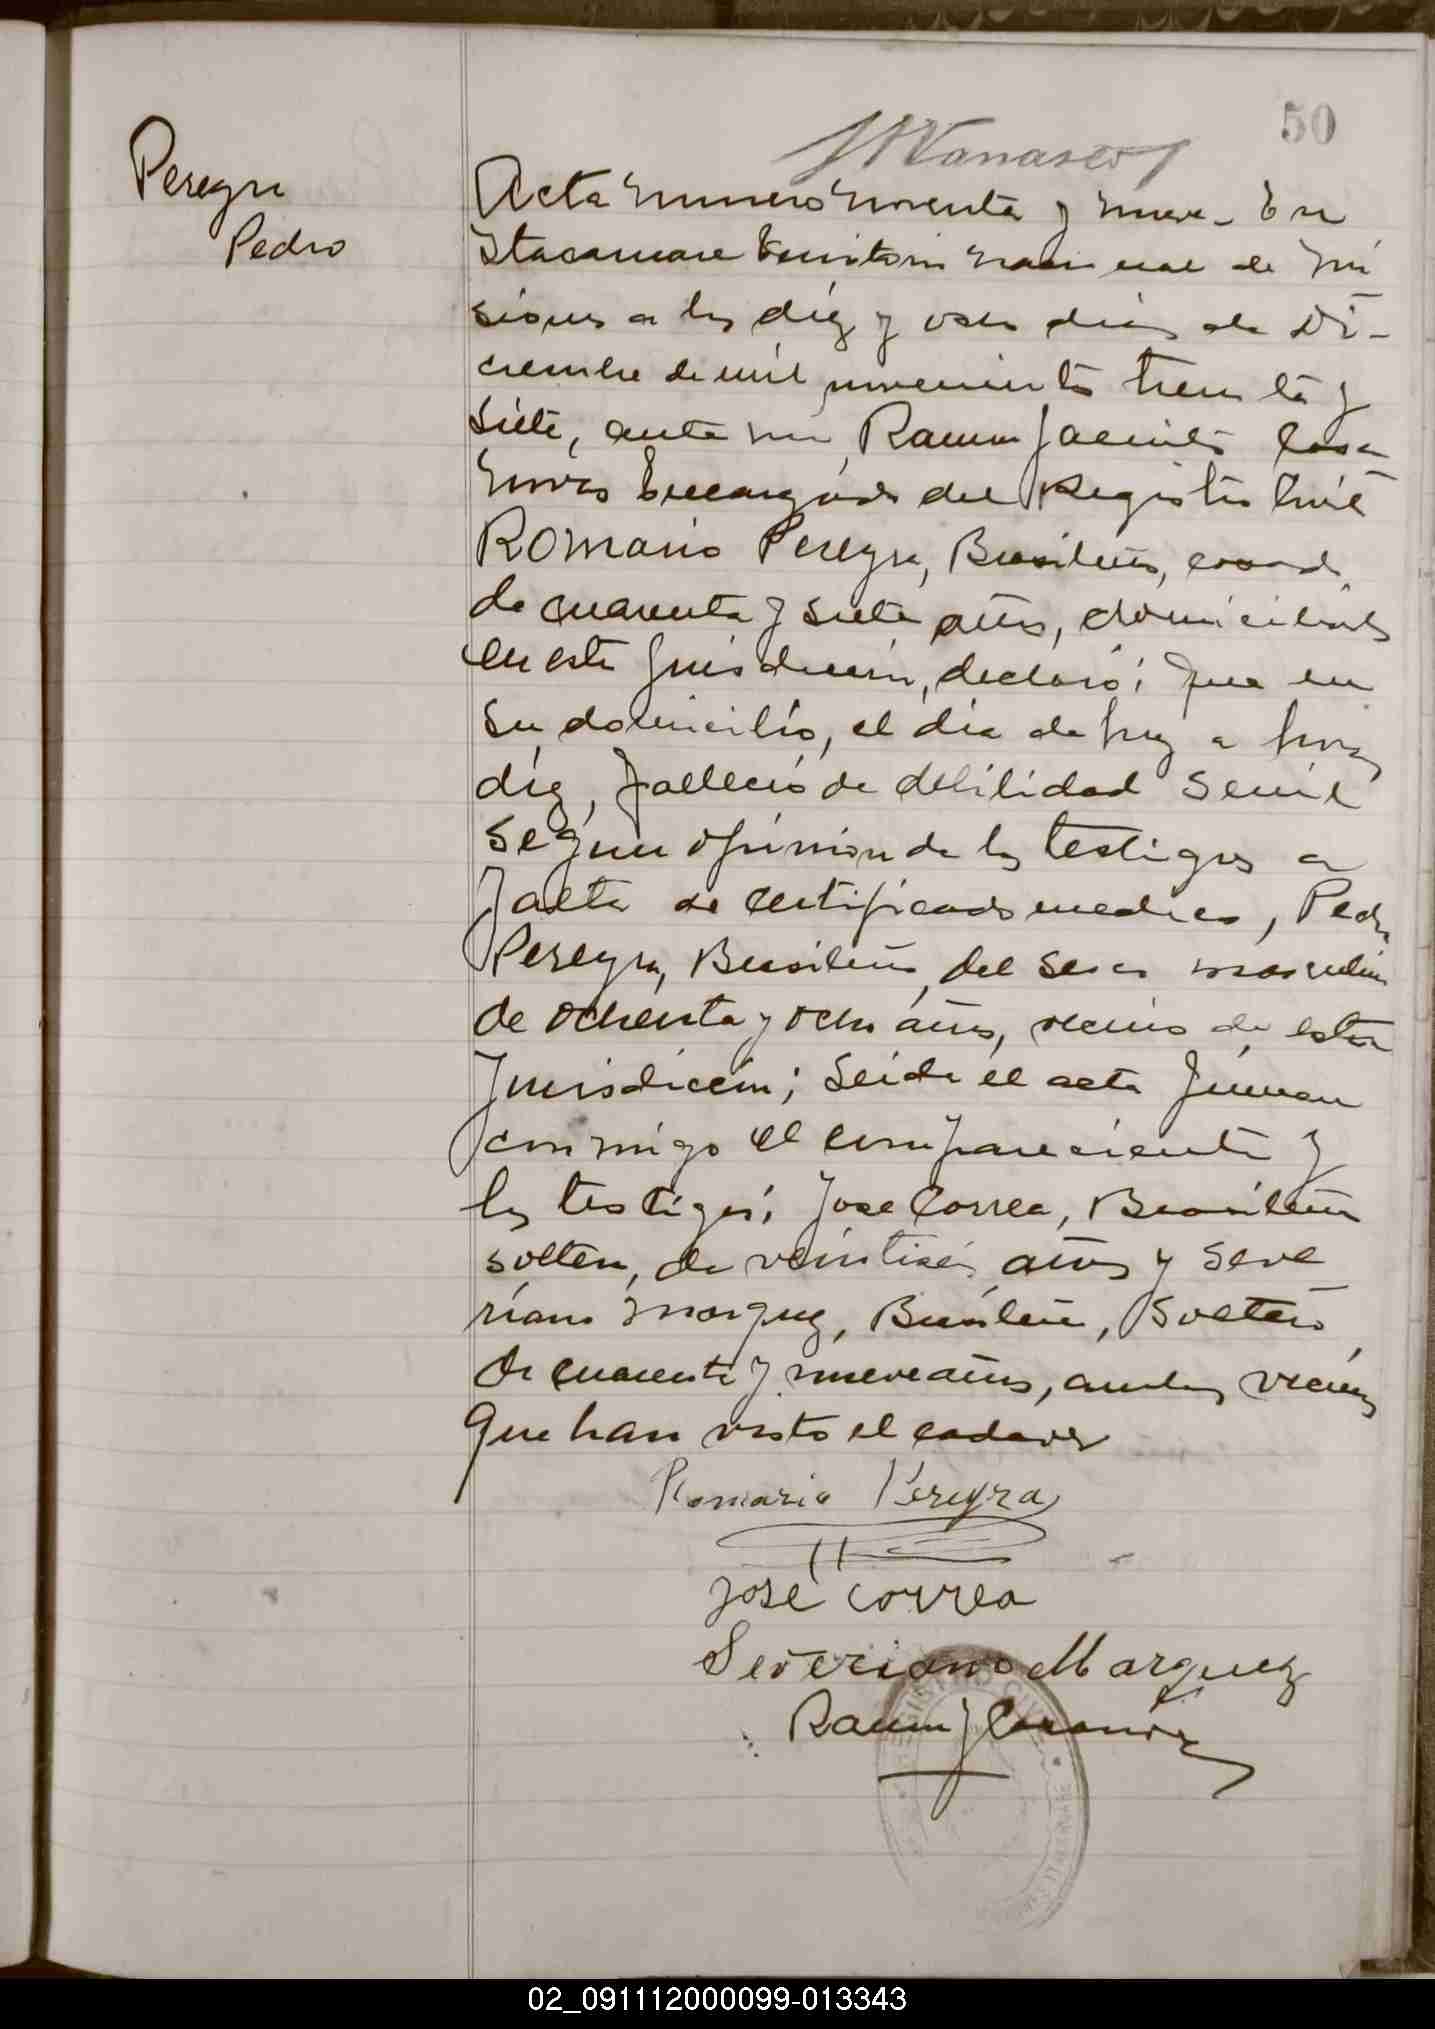 50
Peregra
Pedro
Acta numero noventa y nueve. En
Itacaruare Territorio nacional de Mi
siones a los diez y ocho dias de Di-
ciembre de mil novecientos treinta y
siete, ante mi, Ramon Jacinto Casa
nova Encargado del Registro Civil
Romario Peregra, Brasileño, casado,
de cuarenta y siete años, domiciliado
en esta jurisdicción, declaró: Que en
su domicilio, el dia de hoy a horas
diez, falleció de debilidad senil
según opinion de los testigos a
falta de certificado medico, Pedro
Peregra, Brasileño, del sexo masculino
de ochenta y ocho años, vecino de esta
Jurisdicción; Leida el acta firman
conmigo el compareciente y
los testigos: Jose Correa, Brasileño
soltero, de veintiseis años y Seve
riano Marquez, Brasileño, soltero
de cuarenta y nueve años, ambos vecinos
que han visto el cadaver
Romario Peregra
José Correa
Severiano Marquez
Ramon J Casanova
REGISTRO CIVIL
02_091112000099-013343